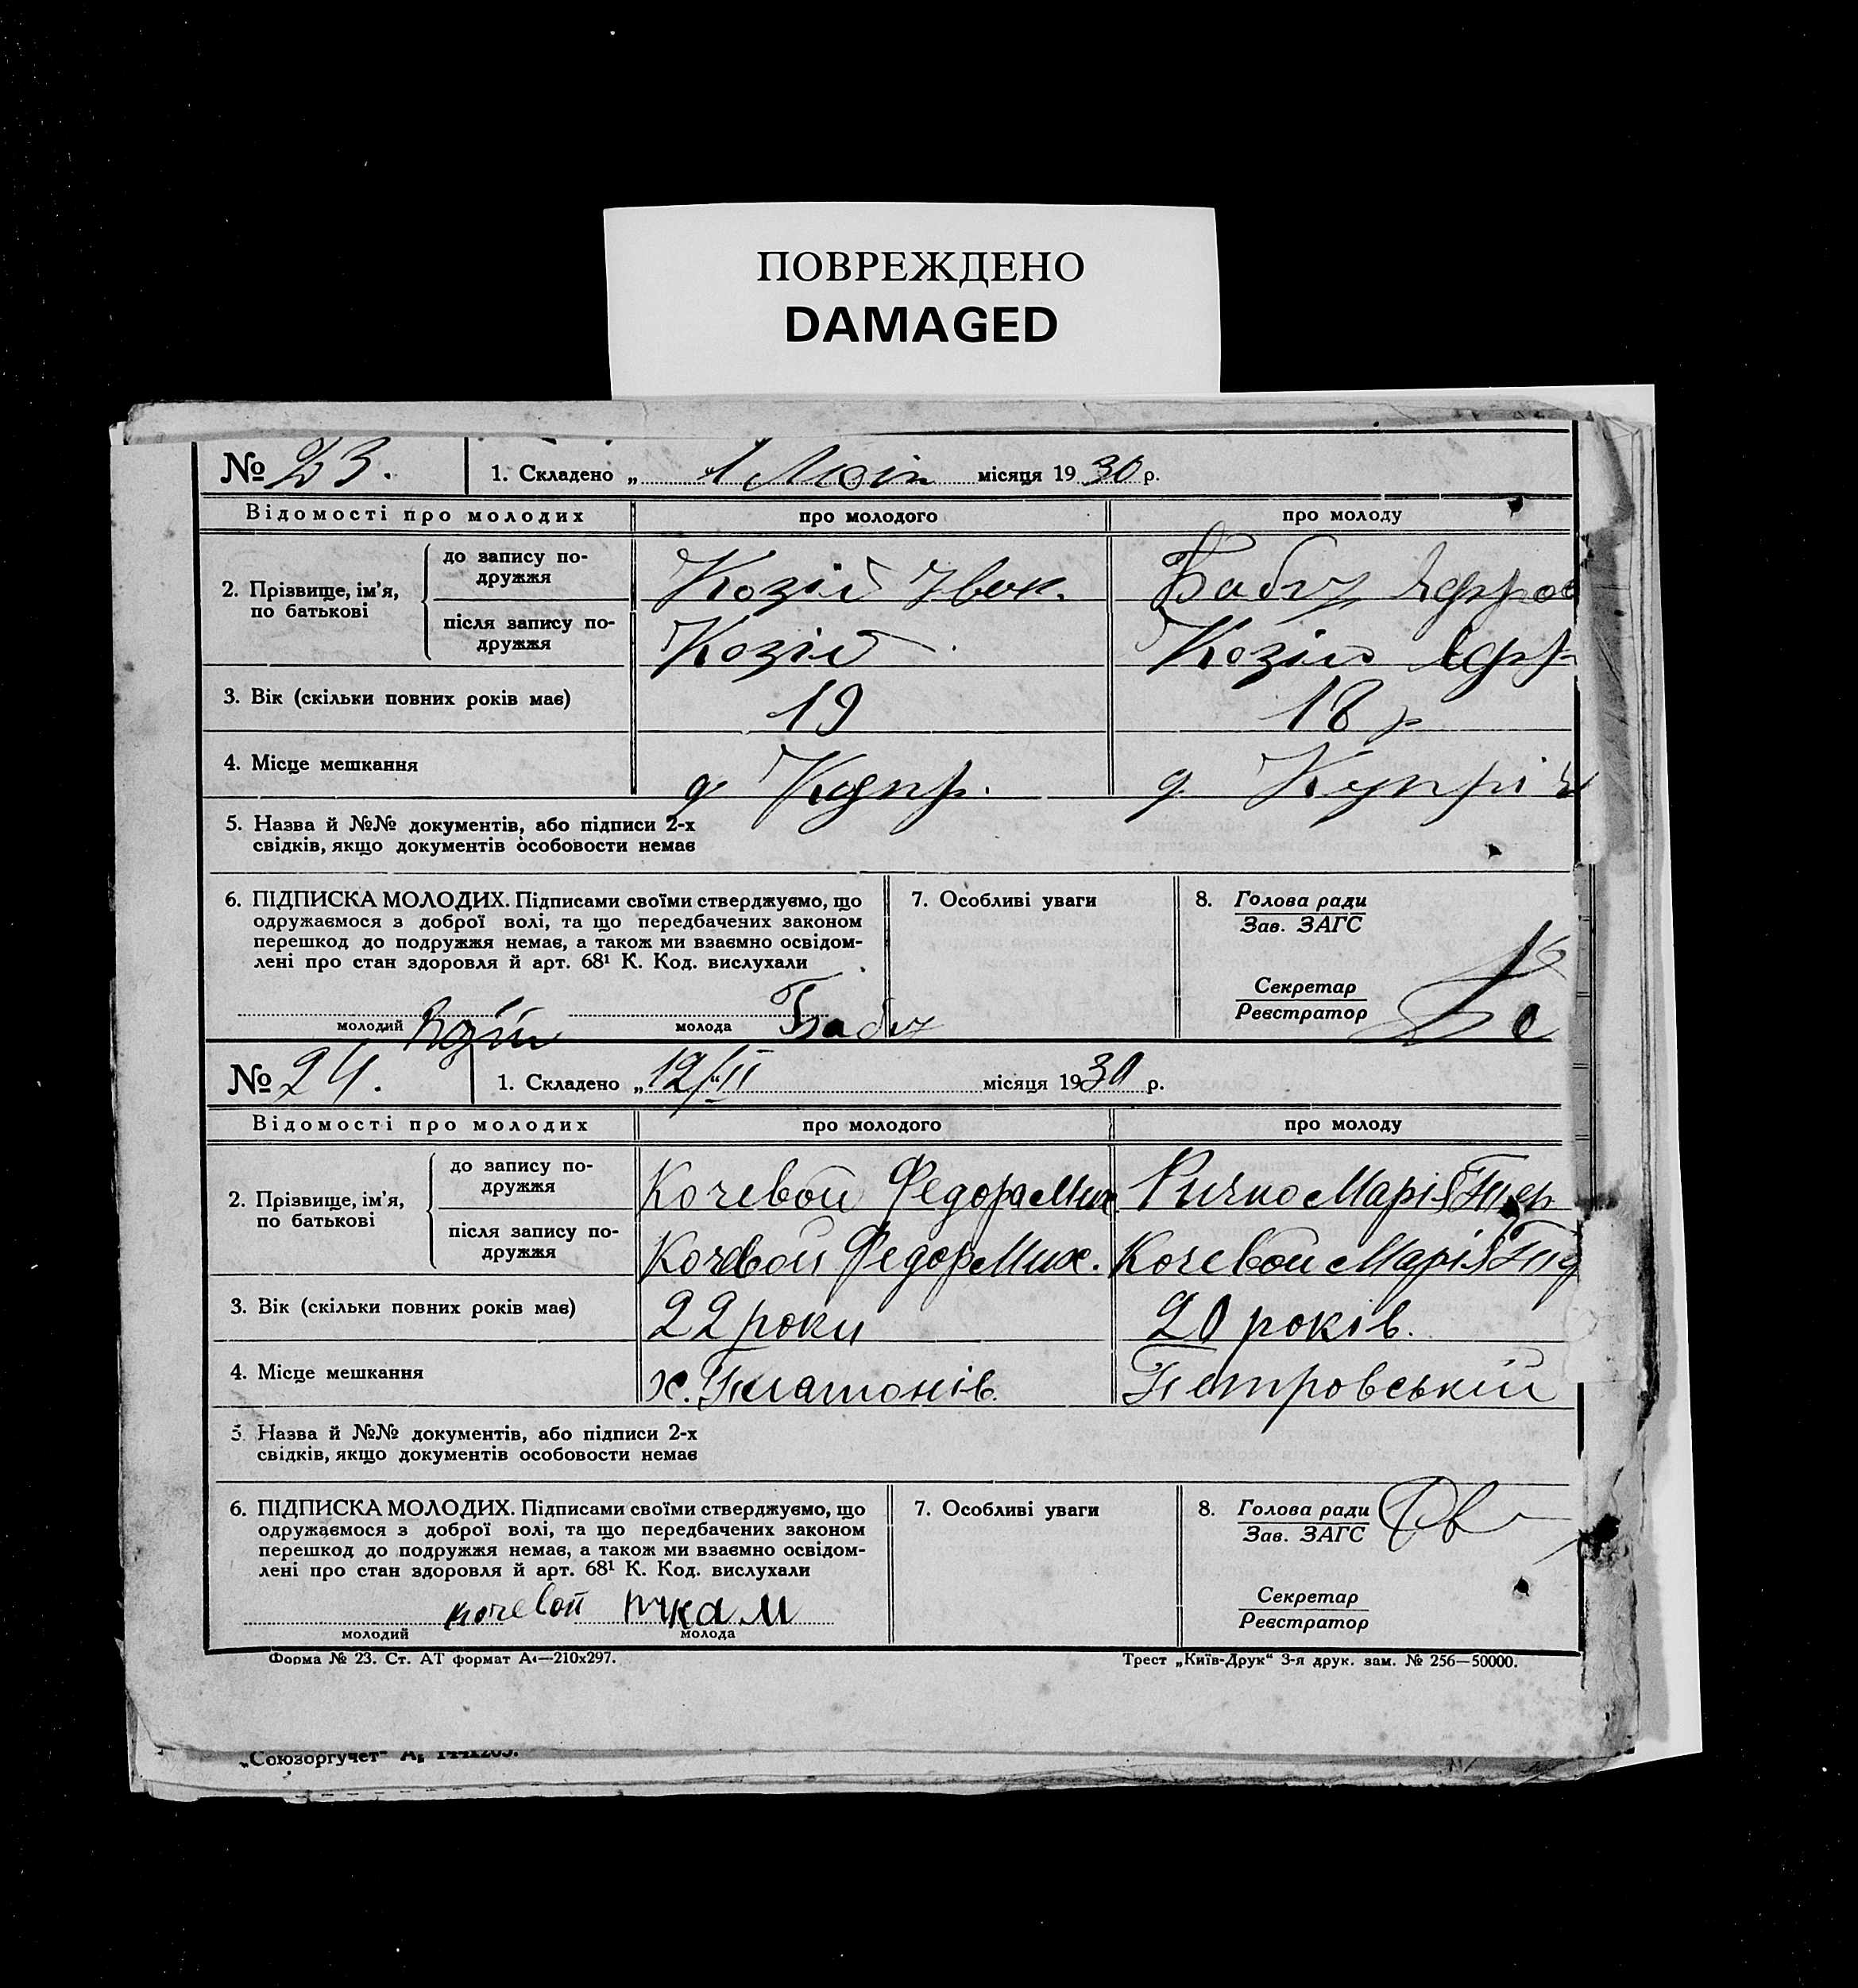 ПОВРЕЖДЕНО
DAMAGED
№ 23. 1. Складено „ 1 місяця 1930 р.
Відомості про молодих про молодого про молоду
2. Прізвище, ім'я, по батькові
до запису подружжя Козій Бабич
після запису подружжя Козій Козій
3. Вік (скільки повних років має) 19 18 р
4. Місце мешкання
5. Назва й №№ документів, або підписи 2-х
свідків, якщо документів особовости немає
6. ПІДПИСКА МОЛОДИХ. Підписами своїми стверджуємо, що
одружаємося з доброї волі, та що передбачених законом
перешкод до подружжя немає, а також ми взаємно освідом-
лені про стан здоровля й арт. 68¹ К. Код. вислухали
молодий молода Бабич
7. Особливі уваги
8. Голова ради
Зав. ЗАГС
Секретар
Реєстратор
№ 24. 1. Складено „12/“II місяця 1930 р.
Відомості про молодих про молодого про молоду
2. Прізвище, ім'я, по батькові
до запису подружжя Кочевой Федор Мих Марія
після запису подружжя Кочевой Федор Мих. Кочевой Марія
3. Вік (скільки повних років має) 22 роки 20 років.
4. Місце мешкання х. Платонів. Петровській
5. Назва й №№ документів, або підписи 2-х
свідків, якщо документів особовости немає
6. ПІДПИСКА МОЛОДИХ. Підписами своїми стверджуємо, що
одружаємося з доброї волі, та що передбачених законом
перешкод до подружжя немає, а також ми взаємно освідом-
лені про стан здоровля й арт. 68¹ К. Код. вислухали
кочевой
молодий молода
7. Особливі уваги
8. Голова ради
Зав. ЗАГС
Секретар
Реєстратор
Форма № 23. Ст. АТ формат А₄—210х297. Трест „Київ-Друк“ 3-я друк. зам. № 256—50000.
„Союзоргучет“